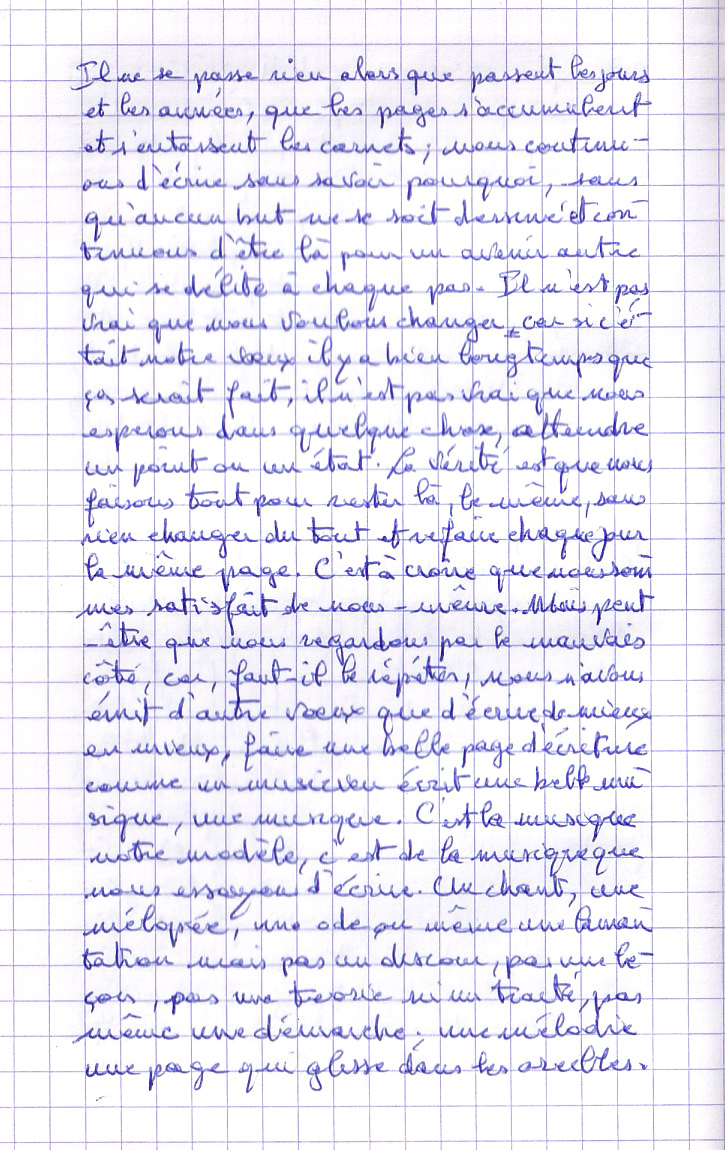 Il ne se passe rien alors que passent les jours
et les années, que les pages s'accumulent
et s'entassent les carnets ; nous continu-
ons d'écrire sans savoir pourquoi, sans
qu'aucun but ne se soit dessiné et con
tinuons d'être là pour un avenir autre
qui se délite à chaque pas. Il n'est pas
vrai que nous voulons changer, car si c'é
tait notre voeux il y a bien longtemps que
ças serait fait, il n'est pas vrai que nous
esperons dans quelque chose, attendre
un point ou un état. La vérité est que nous
faisons tout pour rester là, le même, sans
rien changer du tout et refaire chaque jour
la même page. C'est à croire que nous som
mes satisfait de nous-même. Mais peut
-être que nous regardons par le mauvais
côté, car, faut-il le répéter, nous n'avons
émit d'autre voeux que d'écrire de mieux
en mieux, faire une belle page d'écriture
comme un musicien écrit une belle mu
sique, une musique. C'est la musique
notre modèle, c'est de la musique que
nous essayon d'écrire. Un chant, une
mélopée, une ode ou même une laman
tation mais pas un discour, pas une le-
çon, pas une teorie ni un traité, pas
même une démarche ; une mélodie
une page qui glisse dans les oreilles.